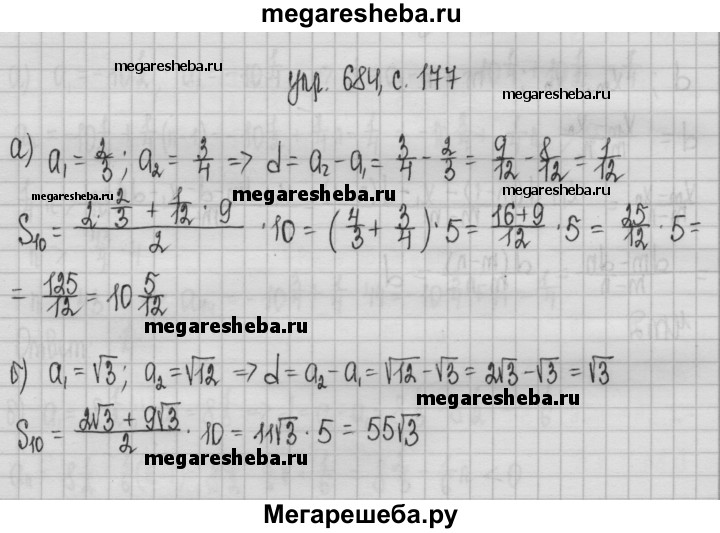 megaresheba.ru
megaresheba.ru
упр. 684, с. 177
megaresheba.ru
а) a₁ = 2/3; a₂ = 3/4 => d = a₂ - a₁ = 3/4 - 2/3 = 9/12 - 8/12 = 1/12
megaresheba.ru megaresheba.ru megaresheba.ru
S₁₀ = (2 · 2/3 + 1/12 · 9)/2 · 10 = (4/3 + 3/4) · 5 = (16+9)/12 · 5 = 25/12 · 5 =
= 125/12 = 10 5/12
megaresheba.ru
б) a₁ = √3; a₂ = √12 => d = a₂ - a₁ = √12 - √3 = 2√3 - √3 = √3
megaresheba.ru
S₁₀ = (2√3 + 9√3)/2 · 10 = 11√3 · 5 = 55√3
megaresheba.ru
Мегарешеба.ру